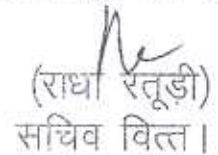 (राधा रतूड़ी)
सचिव वित्त।